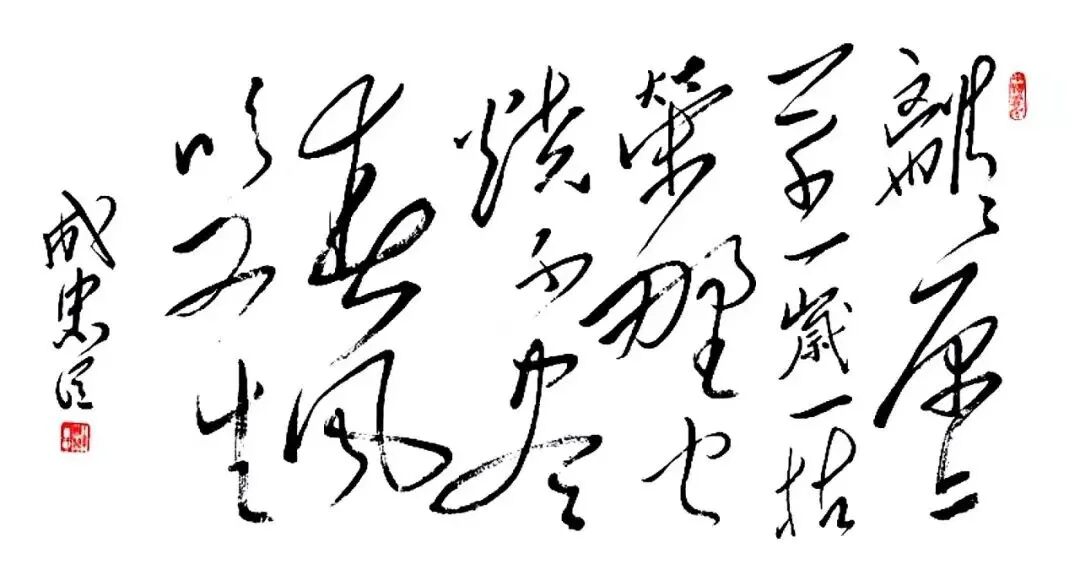 離離原上
草一歲一枯
榮野火
燒不盡
春風
吹又生
成忠